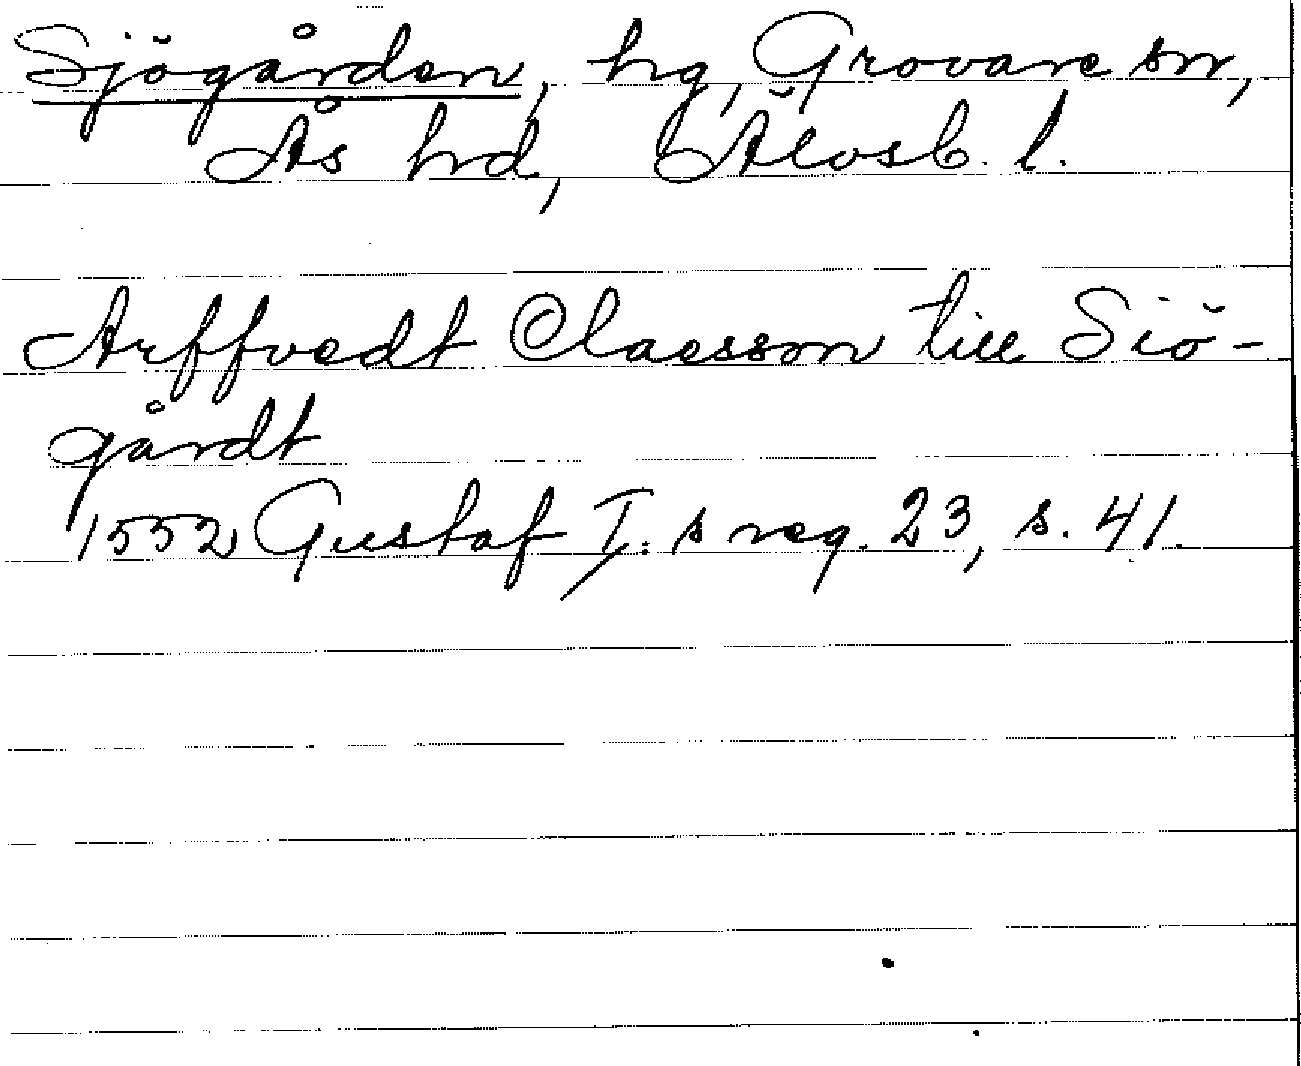 Sjögården, hg, Grovare sn,
Ås hrd, Älvsb. l.
Arffvedt Claesson till Siö-
gårdt
1552 Gustaf I:s reg. 23, s. 41.